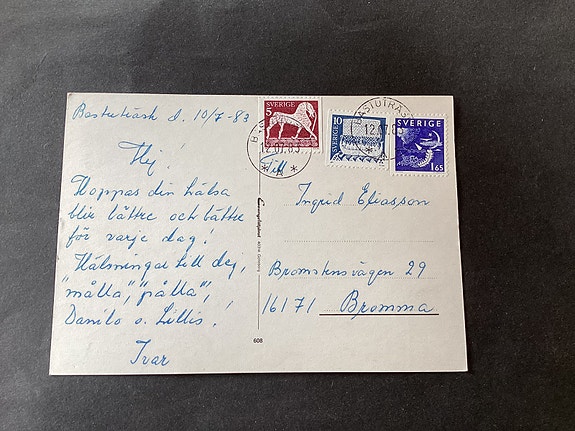 Bastuträsk d. 10/7-83
Hej!
Hoppas din hälsa
blir bättre och bättre
för varje dag!
Hälsningar till dej,
"målla", "pålla",
Danilo o. Lillis!
Ivar
SVERIGE
5
SVERIGE
10
SVERIGE
165
BASTUTRÄSK
12.07.83
* A *
12.07.8
Till
Ingrid Eliasson
Bromstensvägen 29
16171 Bromma
608